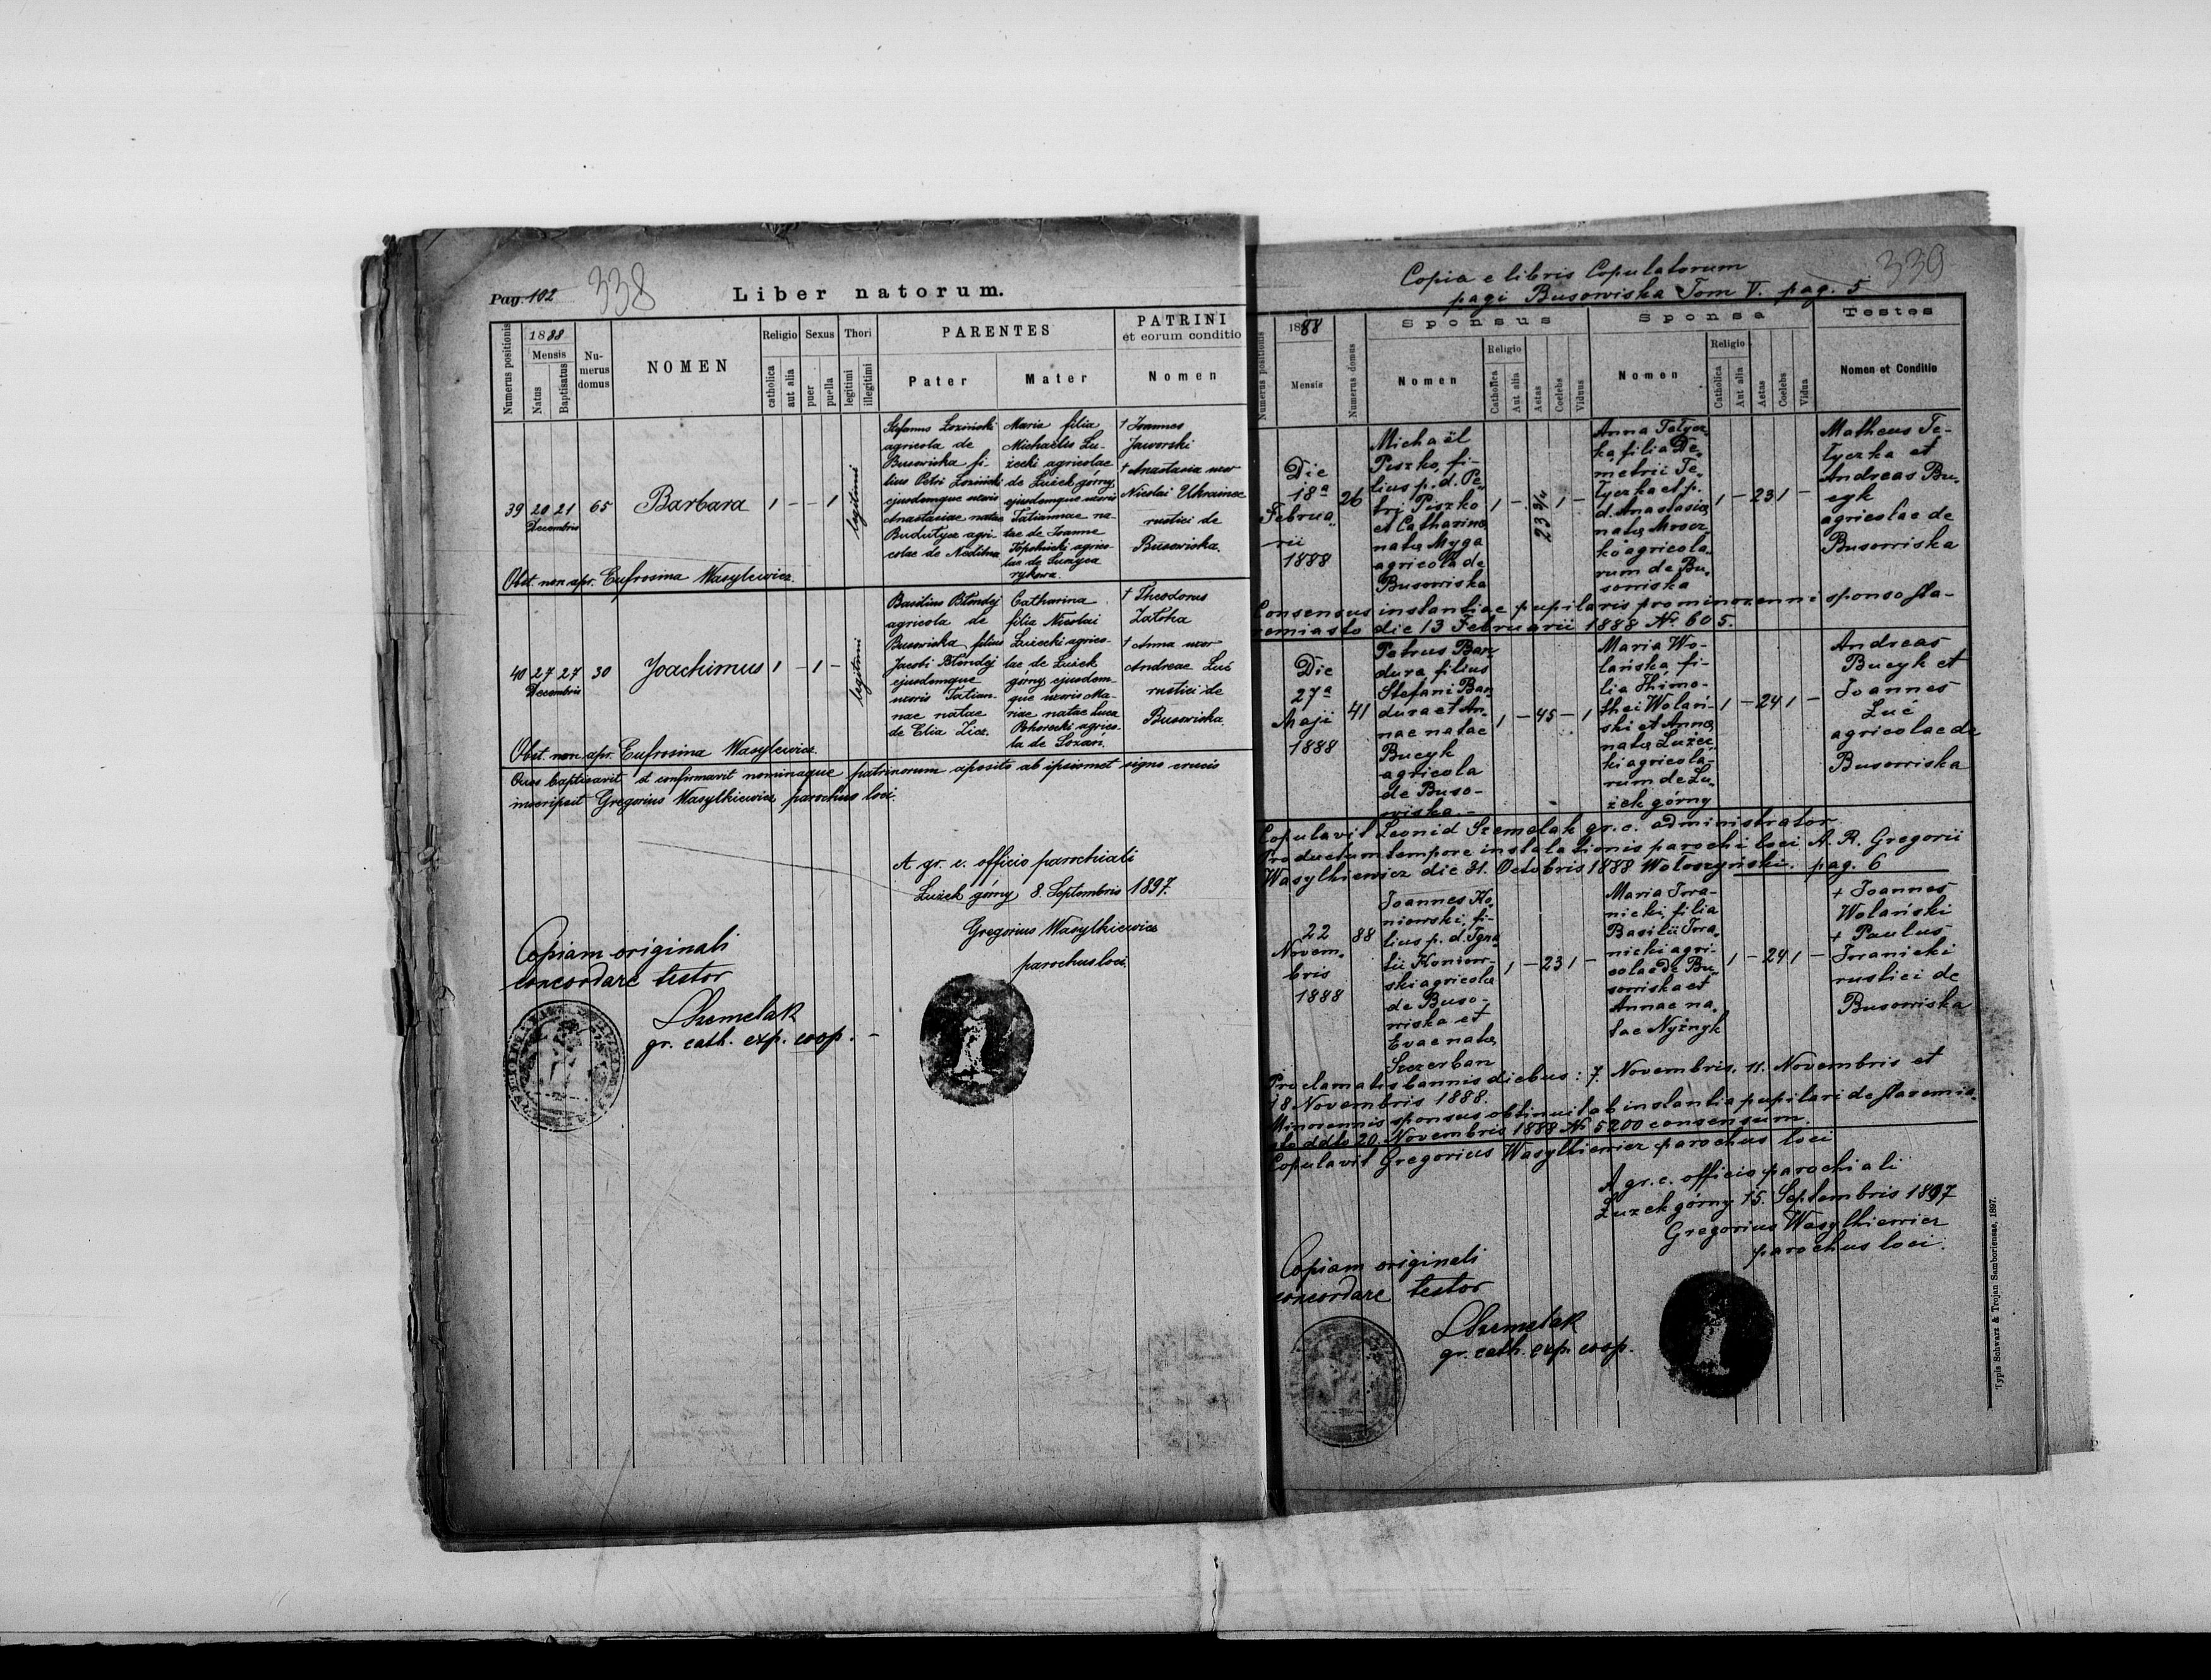 Pag. 102
338
Liber natorum.
Numerus positionis
1888
Mensis
Natus
Baptisatus
Nu-
merus
domus
NOMEN
Religio
catholica
aut alia
Sexus
puer
puella
Thori
legitimi
illegitimi
PARENTES
Pater
Mater
PATRINI
et eorum conditio
Nomen
39 20 21
Decembris
65
Barbara
1 - - 1
legitimi
Stefanus Łoziński
agricola de
Busowiska fi-
lius Petri Łoziński
ejusdemque uxoris
Anastasiae natae
agri-
colae de
Maria filia
Michaelis Łu-
żecki agricolae
de Łużek górny,
ejusdemque uxoris
Tatiannae na-
tae de Joanne
Topolnicki agrico-
lae de
† Joannes
Jaworski
† Anastasia uxor
Nicolai Ukrainec
rustici de
Busowiska.
Obst. non apr. Eufrosina Wasylewicz.
40 27 27
Decembris
30
Joachimus
1 - 1 -
legitimi
Basilius
agricola de
Busowiska filius
Jacobi
ejusdemque
uxoris Tatian-
nae natae
de Elia
Catharina
filia Nicolai
Łużecki agrico-
lae de Łużek
górny, ejusdem-
que uxoris Ma-
riae natae Luca
Pohorecki agrico-
la de
† Theodorus
Zatoka
† Anna uxor
Andreae Łuć
rustici de
Busowiska
Obst. non apr. Eufrosina Wasylewicz.
Quos baptisavit et confirmavit nominaque patrinorum aposito ab ipsismet signo crucis
inscripsit Gregorius Wasylkiewicz parochus loci.
A gr. c. officio parochiali
Łużek górny 8. Septembris 1897.
Gregorius Wasylkiewicz
parochus loci.
Copiam originali
concordare testor
LSzemelak
gr. cath. exp. coop. -
339
Copia e libris Copulatorum
pagi Busowiska Tom V. pag. 5
Numerus positionis
1888
Mensis
Numerus domus
Sponsus
Nomen
Religio
Catholica
Aut alia
Aetas
Coelebs
Viduus
Sponsa
Nomen
Religio
Catholica
Aut alia
Aetas
Coelebs
Vidua
Testes
Nomen et Conditio
Die
18ª
Februa-
rii
1888
26
Michaël
Piszko, fi-
lius p. d. Pe-
tri Piszko
et Catharinae
natae Myga
agricola de
Busowiska
1 - 23 3/4 1 -
Anna Tetycz-
ka filia De-
metrii Te-
tyczka et p.
d. Anastasiae
natae Mosz-
ko agricola-
rum de Bu-
sowiska
1 - 23 1 -
Matheus Te-
tyczka et
Andreas Bu-
cyk
agricolae de
Busowiska
Consensus instantiae pupilaris pro minorenni sponso Sta-
remiasto die 13 Februarii 1888 № 605.
Die
27ª
Maji
1888
41
Petrus Ban-
dura filius
Stefani Ban-
dura et An-
nae natae
Bucyk
agricola
de Buso-
wiska. -
1 - 45 - 1
Maria Wo-
lańska fi-
lia Thimo-
thei Wolań-
ski et Annae
natae Łużec-
ki agricola-
rum de Łu-
żek górny
1 - 24 1 -
Andreas
Bucyk et
Joannes
Łuć
agricolae de
Busowiska
Copulavit Leonid Szemelak gr. c. administrator
Productum tempore instalationis parochi loci A. R. Gregorii
Wasylkiewicz die 31. Octobris 1888 Wołoszyński. pag. 6
22
Novem-
bris
1888
88
Joannes Ko-
niowski, fi-
lius p. d. Igna-
tii Koniow-
ski agricolae
de Buso-
wiska et
Evae natae
Szczerban
1 - 23 1 -
Maria Iwa-
nicki, filia
Basilii Iwa-
nicki agri-
colae de Bu-
sowiska et
Annae na-
tae Nyżnyk
1 - 24 1 -
† Joannes
Wolański
† Paulus
Iwanicki
rustici de
Busowiska
Proclamatis bannis diebus: 7. Novembris. 11. Novembris et
18 Novembris 1888.
Minorennis sponsus obtinuit ab instantia pupilari de Staremia-
sto ddto 20. Novembris 1888 № 5200 consensum.
Copulavit Gregorius Wasylkiewicz parochus loci
A gr. c. officio parochiali
Łużek górny 15. Septembris 1897
Gregorius Wasylkiewicz
parochus loci.
Copiam originali
concordare testor
LSzemelak
gr. cath. exp. coop.
Typis Schwarz & Trojan Samboriensae, 1897.